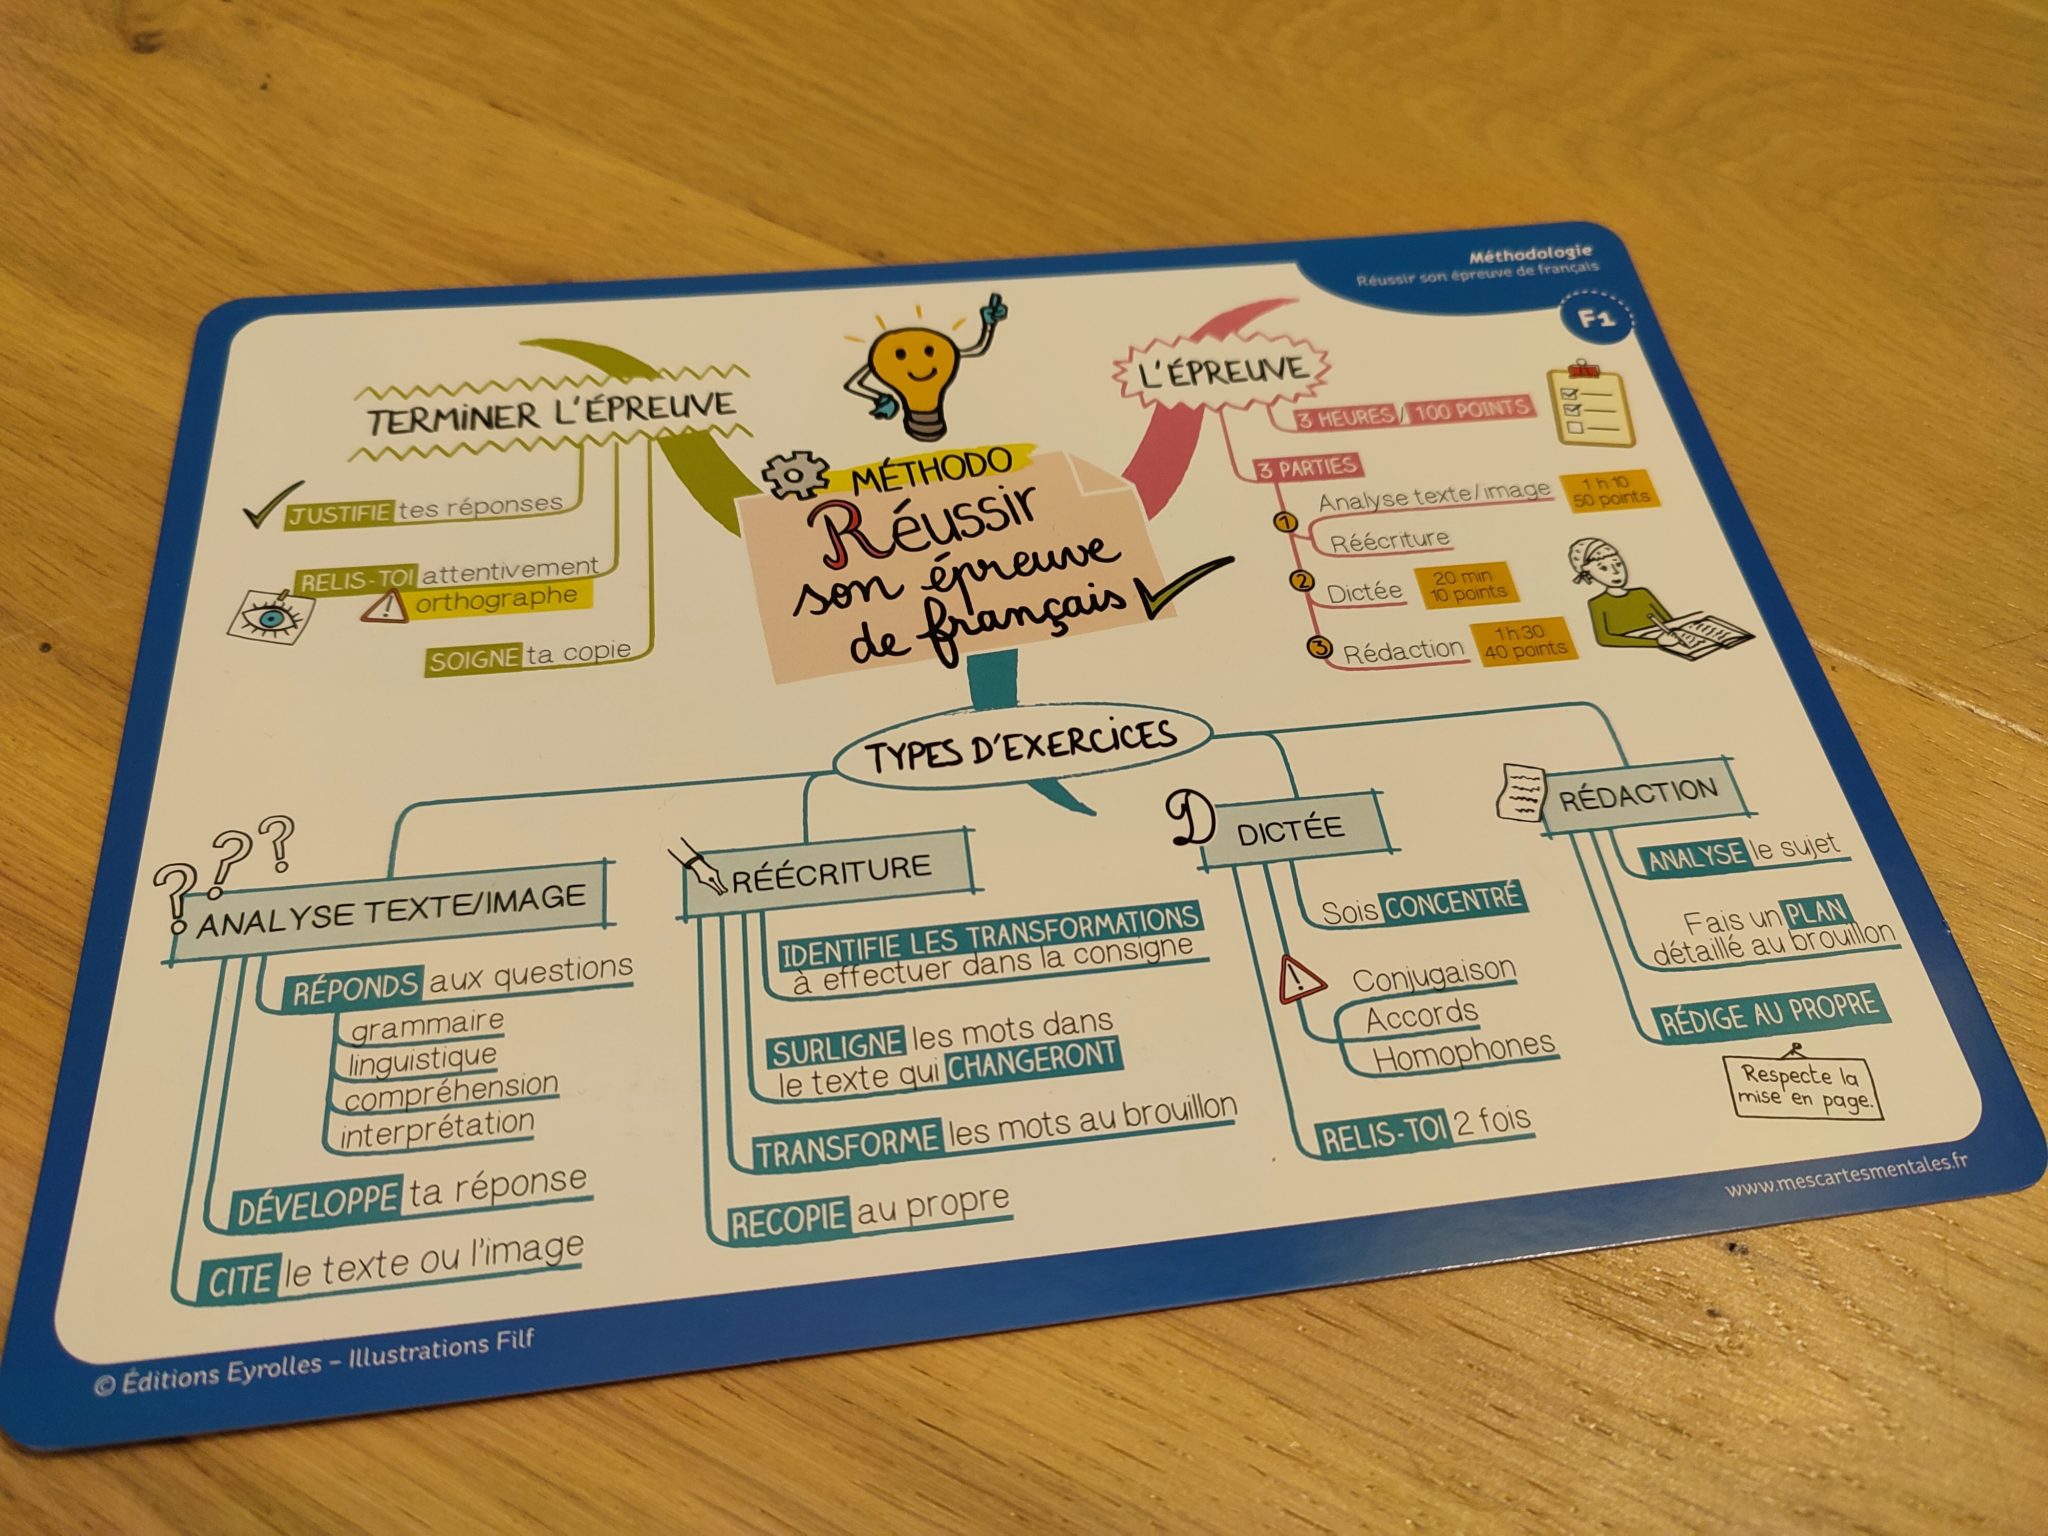 Méthodologie
Réussir son épreuve de français
F1
MÉTHODO
Réussir
son épreuve
de français
L'ÉPREUVE
3 HEURES / 100 POINTS
3 PARTIES
1
Analyse texte/image
1 h 10
50 points
Réécriture
2
Dictée
20 min
10 points
3
Rédaction
1 h 30
40 points
TYPES D'EXERCICES
ANALYSE TEXTE/IMAGE
RÉPONDS aux questions
grammaire
linguistique
compréhension
interprétation
DÉVELOPPE ta réponse
CITE le texte ou l'image
RÉÉCRITURE
IDENTIFIE LES TRANSFORMATIONS
à effectuer dans la consigne
SURLIGNE les mots dans
le texte qui CHANGERONT
TRANSFORME les mots au brouillon
RECOPIE au propre
D
DICTÉE
Sois CONCENTRÉ
Conjugaison
Accords
Homophones
RELIS-TOI 2 fois
RÉDACTION
ANALYSE le sujet
Fais un PLAN
détaillé au brouillon
RÉDIGE AU PROPRE
Respecte la
mise en page.
TERMINER L'ÉPREUVE
JUSTIFIE tes réponses
RELIS-TOI attentivement
orthographe
SOIGNE ta copie
© Éditions Eyrolles – Illustrations Filf
www.mescartesmentales.fr